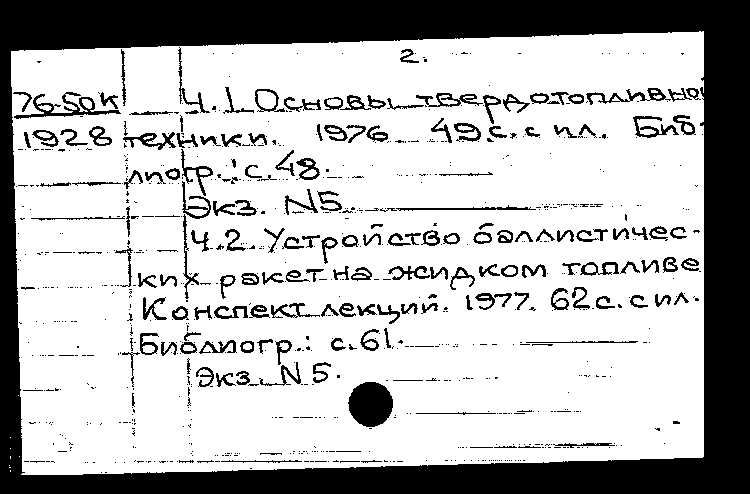 2.
76-50К Ч.1 Основы твердотопливной
1928 техники. 1976 49с. с ил. Биб-
лиогр.: с.48.
Экз. N5.
Ч.2. Устройство баллистичес-
ких ракет на жидком топливе
Конспект лекций. 1977. 62с. с ил.
Библиогр.: с.61.
Экз. N5.